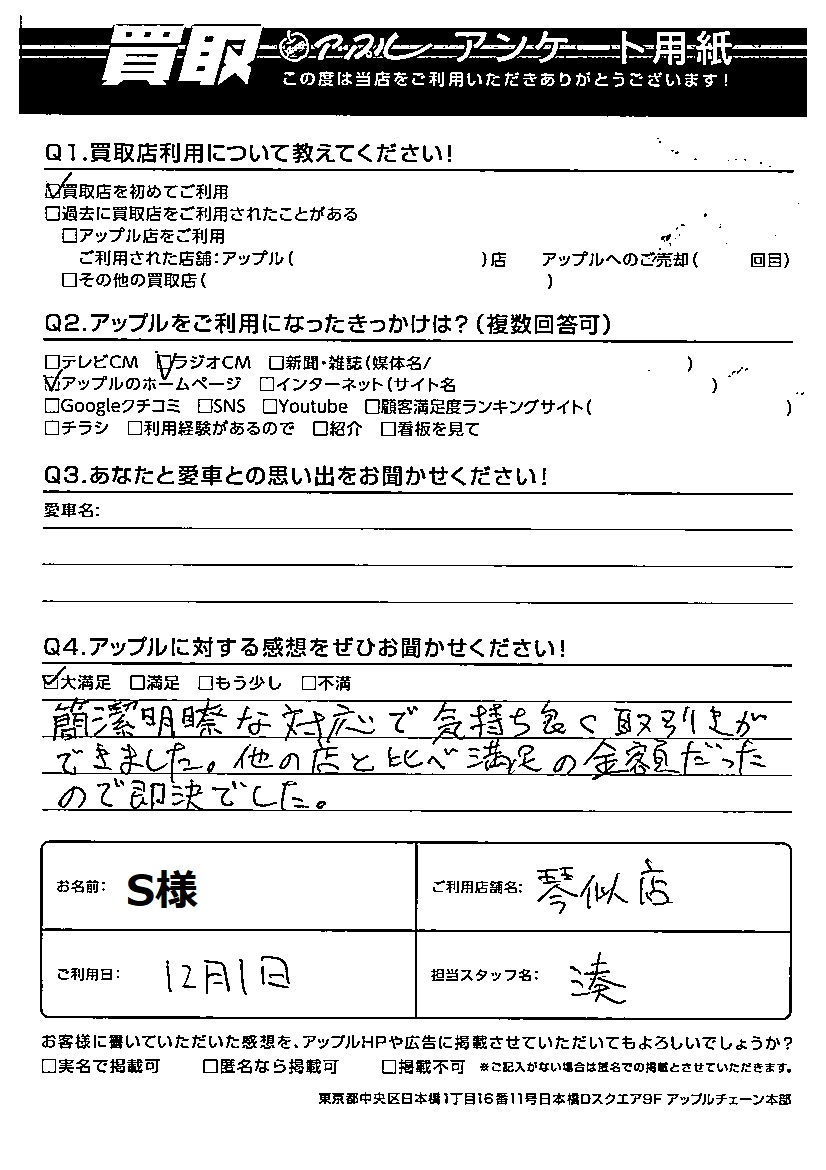 買取 アップル アンケート用紙
この度は当店をご利用いただきありがとうございます!
Q1.買取店利用について教えてください!
☑買取店を初めてご利用
□過去に買取店をご利用されたことがある
□アップル店をご利用
ご利用された店舗:アップル( )店 アップルへのご売却( 回目)
□その他の買取店( )
Q2.アップルをご利用になったきっかけは?(複数回答可)
□テレビCM ☑ラジオCM □新聞・雑誌(媒体名/ )
☑アップルのホームページ □インターネット(サイト名 )
□Googleクチコミ □SNS □Youtube □顧客満足度ランキングサイト( )
□チラシ □利用経験があるので □紹介 □看板を見て
Q3.あなたと愛車との思い出をお聞かせください!
愛車名:
Q4.アップルに対する感想をぜひお聞かせください!
☑大満足 □満足 □もう少し □不満
簡潔明瞭な対応で気持ち良く取引きが
できました。他の店と比べ満足の金額だった
ので即決でした。
お名前: S様 ご利用店舗名: 琴似店
ご利用日: 12月1日 担当スタッフ名: 湊
お客様に書いていただいた感想を、アップルHPや広告に掲載させていただいてもよろしいでしょうか?
□実名で掲載可 □匿名なら掲載可 □掲載不可 ※ご記入がない場合は匿名での掲載とさせていただきます。
東京都中央区日本橋1丁目16番11号日本橋Dスクエア9F アップルチェーン本部